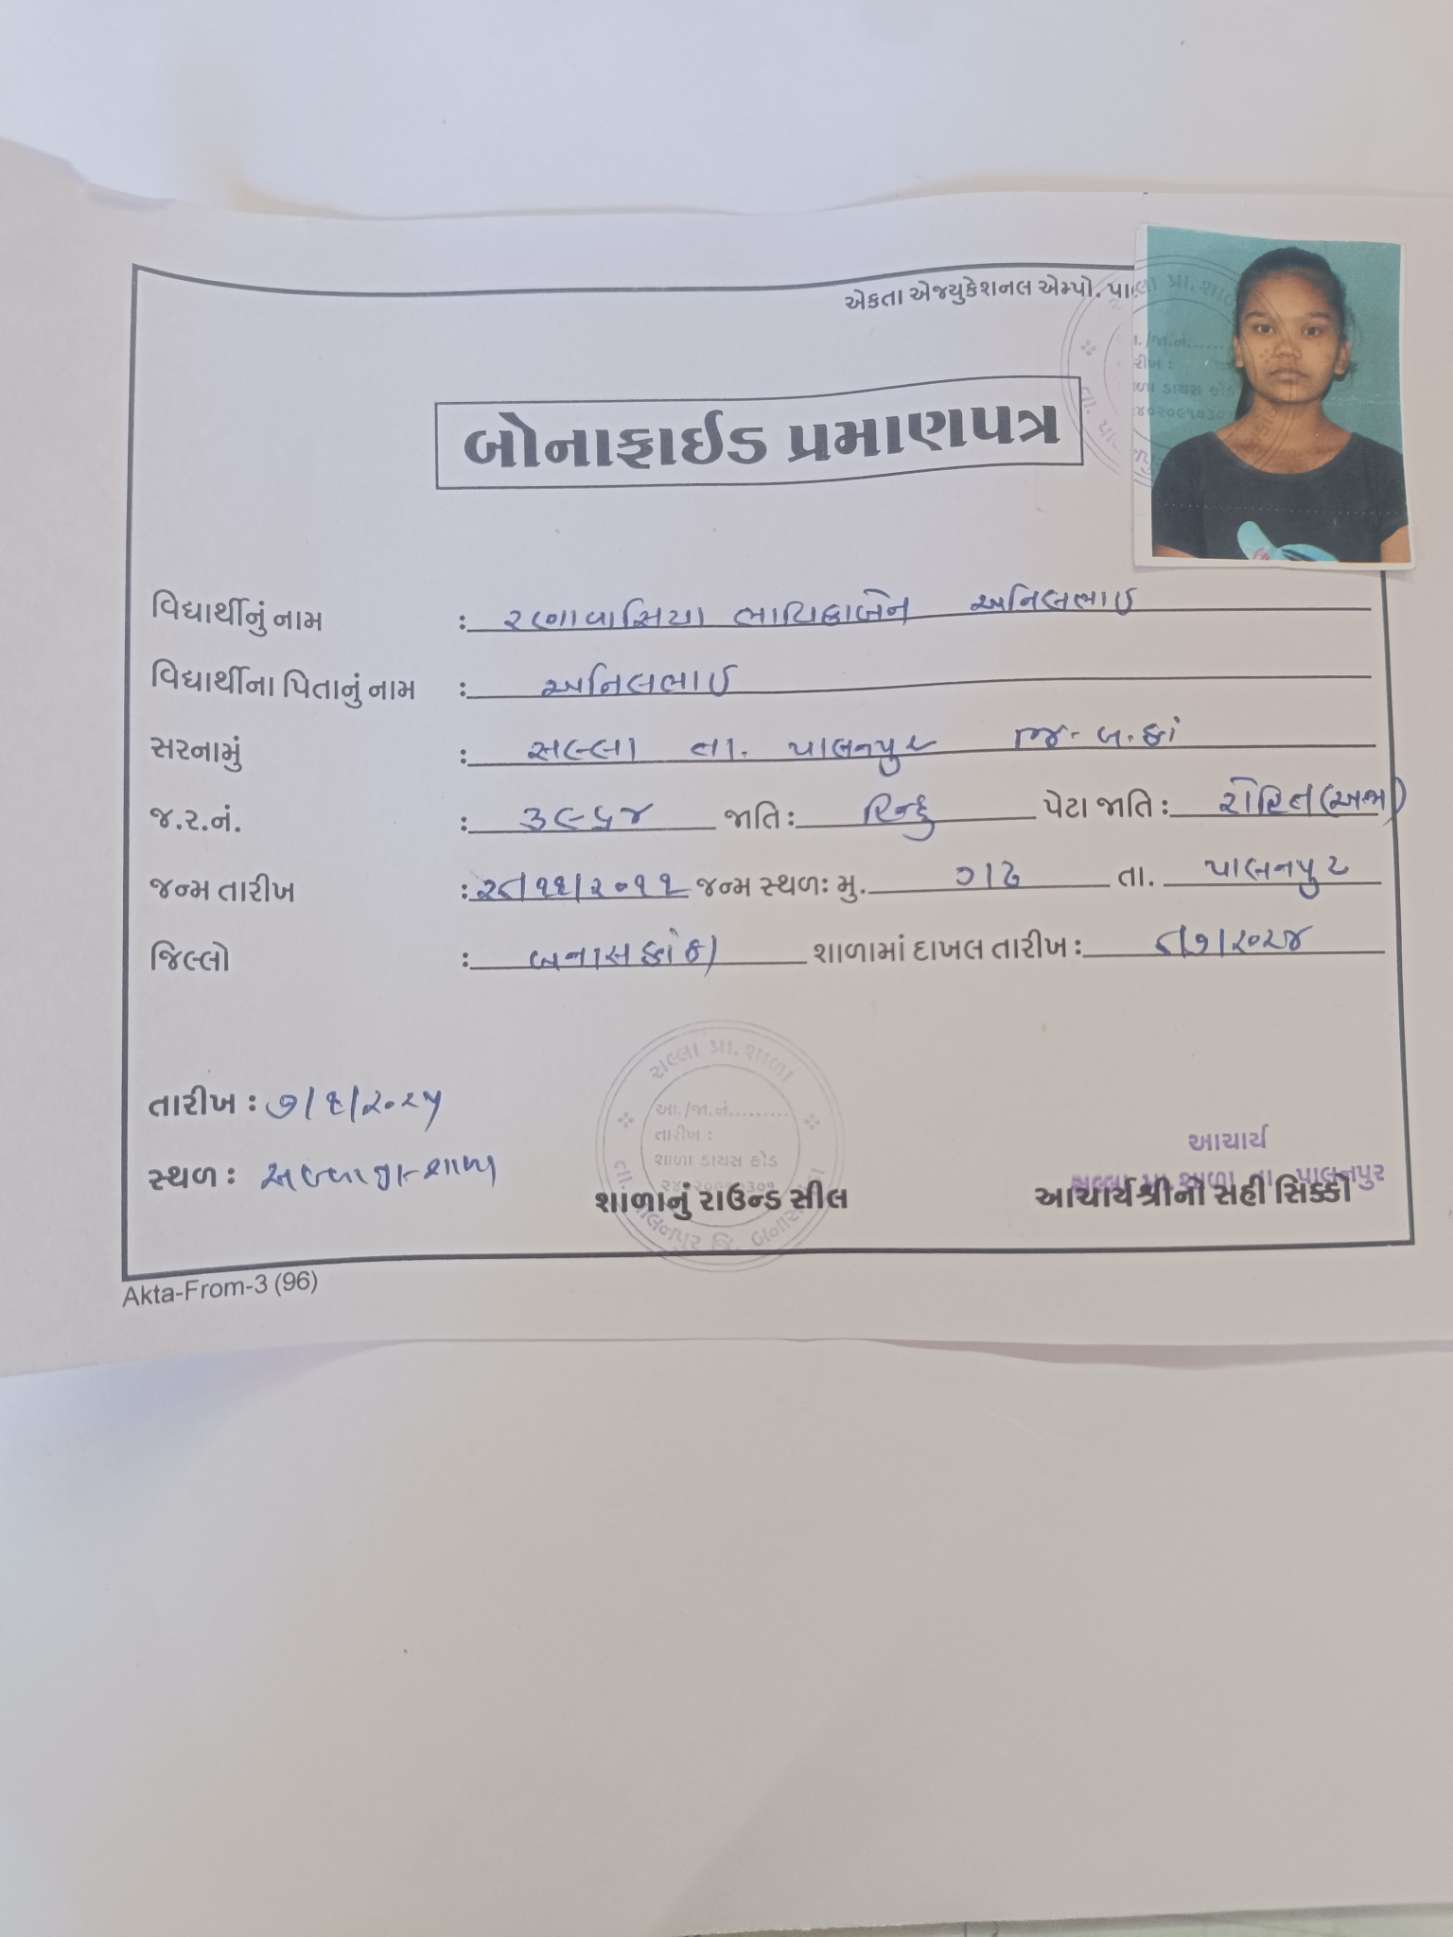 એકતા એજ્યુકેશનલ એમ્પો. પા
બોનાફાઈડ પ્રમાણપત્ર
વિદ્યાર્થીનું નામ : રણાવાસિયા ભાવિકાબેન અનિલભાઈ
વિદ્યાર્થીના પિતાનું નામ : અનિલભાઈ
સરનામું : સલ્લા તા. પાલનપુર જી. બ.કાં
જ.ર.નં. : ૩૯૬૪ જાતિ : હિન્દુ પેટા જાતિ : રોહિત (અ.જા)
જન્મ તારીખ : ૨૮/૧૧/૨૦૧૧ જન્મ સ્થળઃ મુ. ગઢ તા. પાલનપુર
જિલ્લો : બનાસકાંઠા શાળામાં દાખલ તારીખ : ૮/૭/૨૦૨૪
તારીખ : ૭/૧/૨૦૨૫
સલ્લા પ્રા. શાળા
આ./જા.નં.........
તારીખ :
શાળા ડાયસ કોડ
સ્થળ : સલ્લા પ્રા. શાળા
આચાર્ય
સલ્લા પ્રા. શાળા તા. પાલનપુર
શાળાનું રાઉન્ડ સીલ આચાર્યશ્રીનો સહી સિક્કો
Akta-From-3 (96)